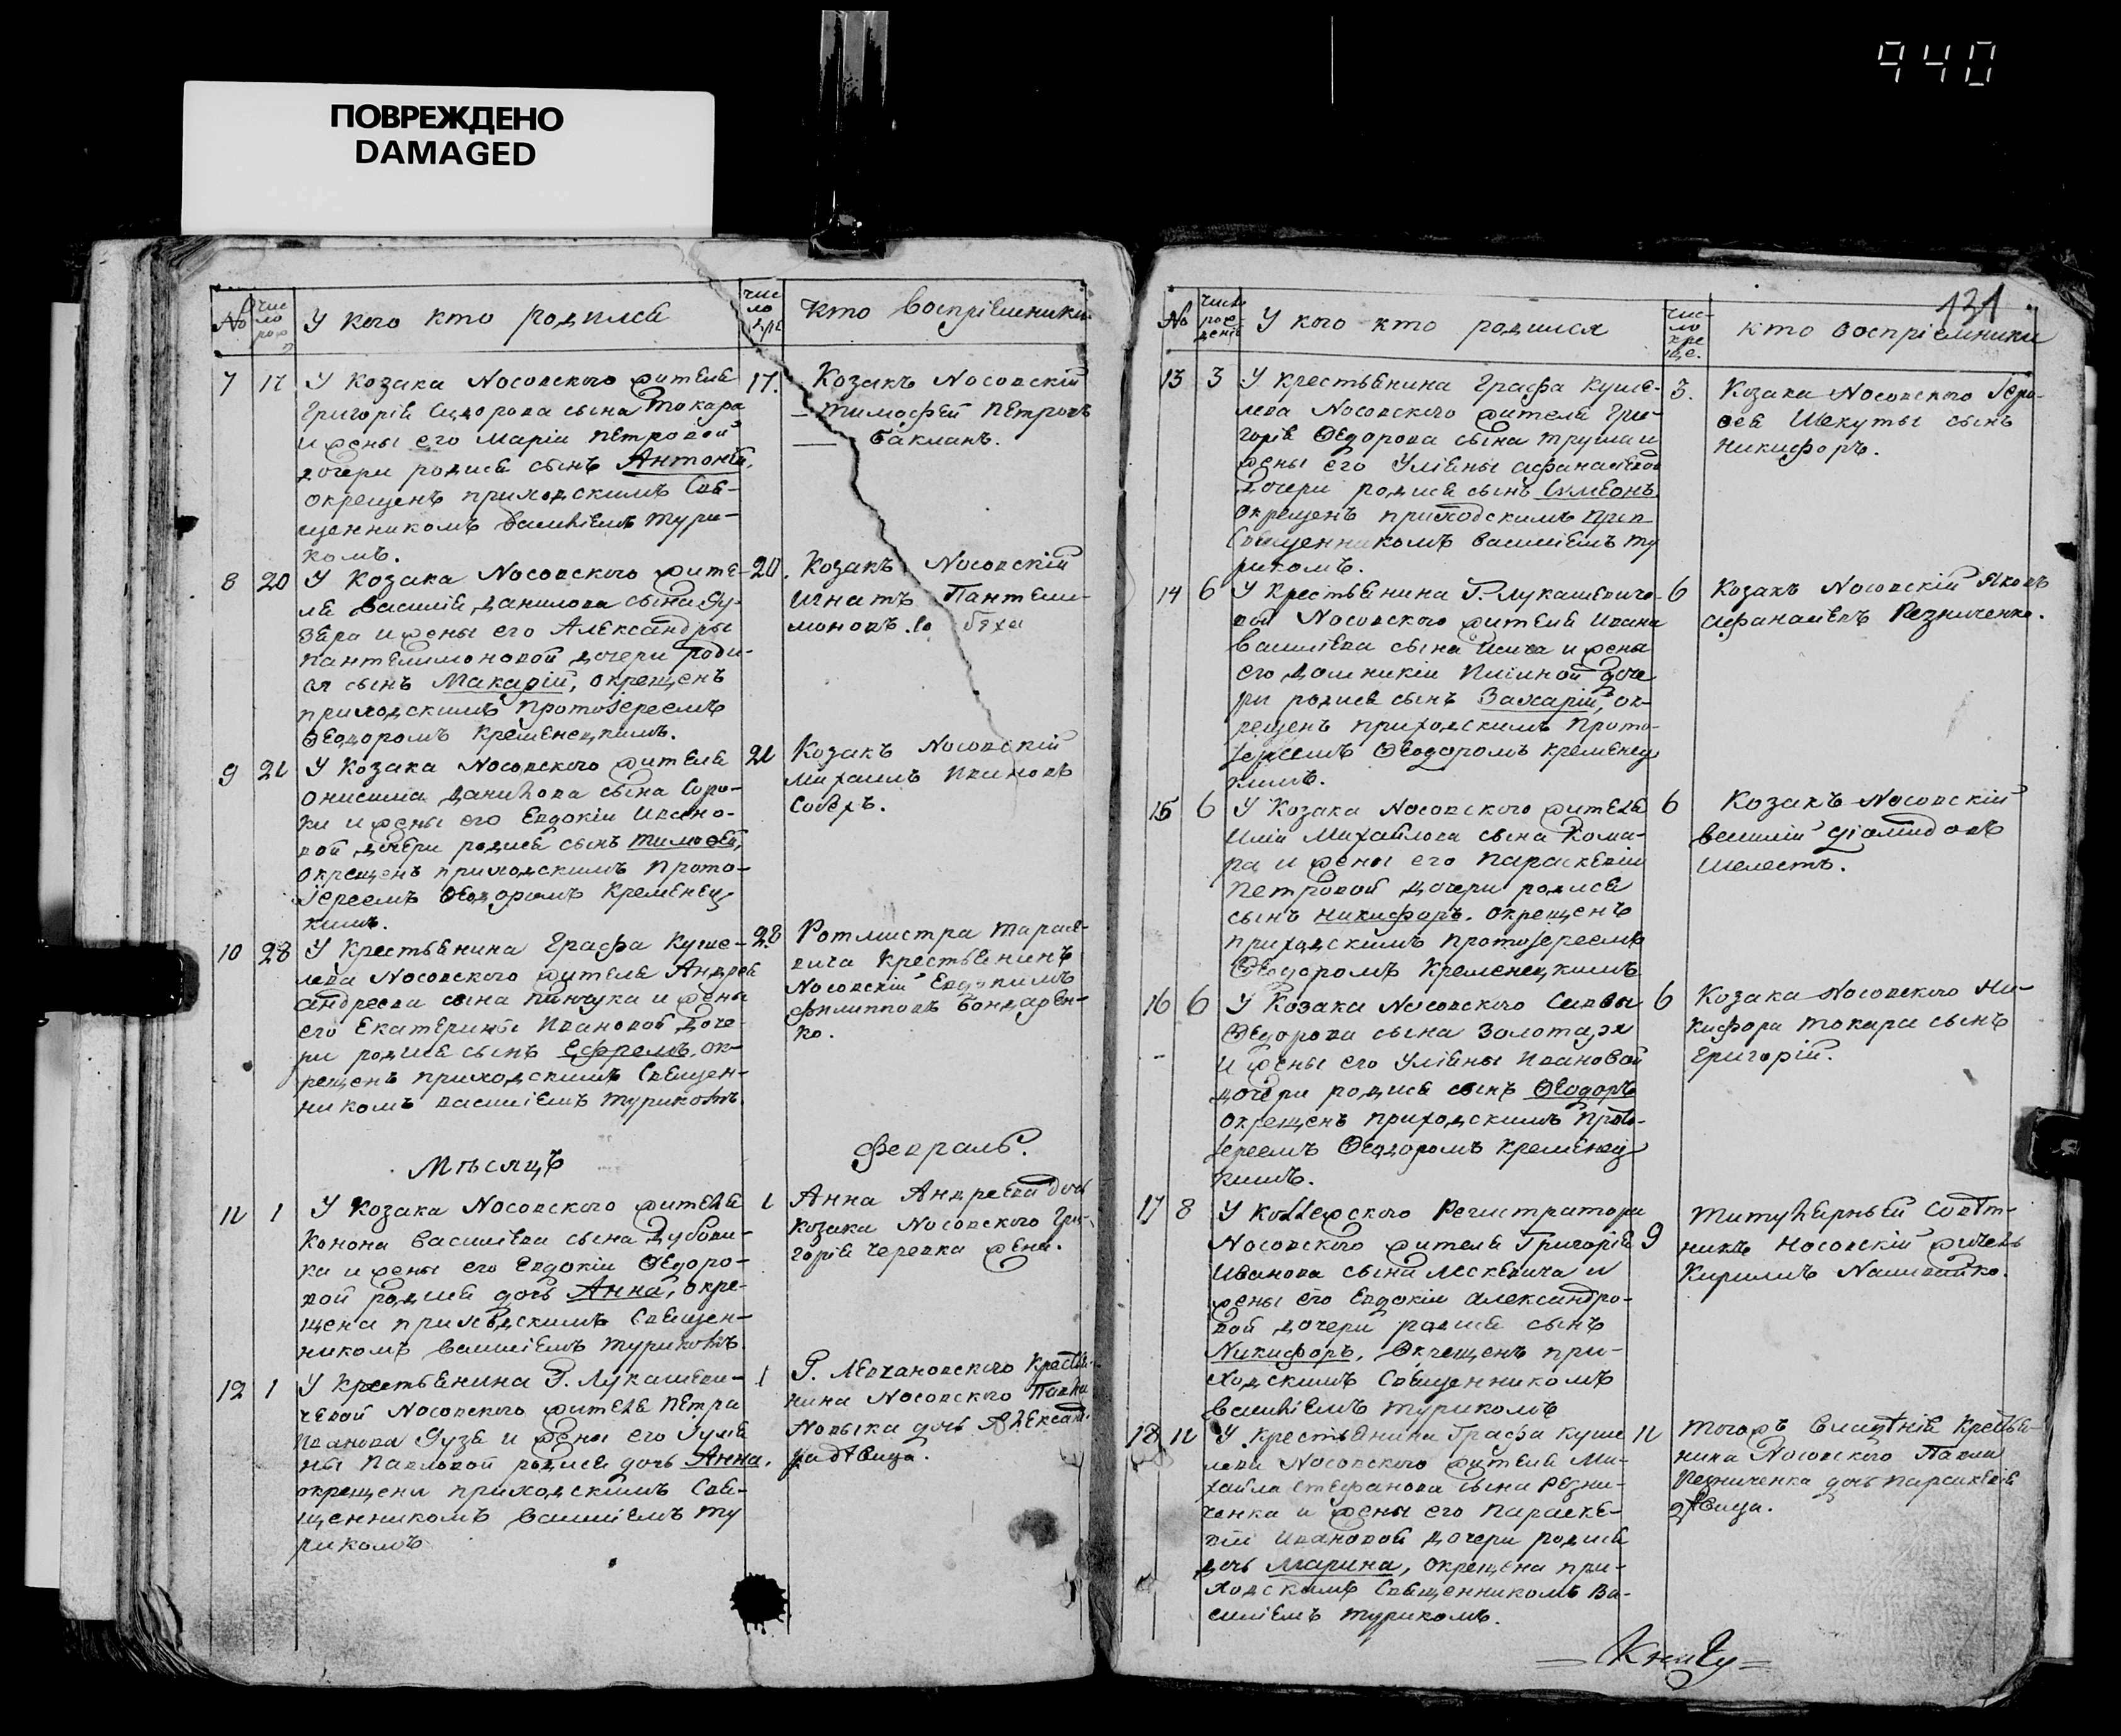 940
ПОВРЕЖДЕНО
DAMAGED
131
№ Чис ло рож У кого кто родился чис ло кре кто воспріемники
7 17 У козака Носовского жителя 17.
Григорія Сидорова сына Токаря
и жены его Маріи Петровой
дочери родися сынъ Антоній,
окрещенъ приходскимъ Свя-
щенникомъ Василіемъ Тури-
комъ.
Козакъ Носовскій
Тимофей Петровъ
Бакланъ.
8 20 У козака Носовского жите- 20.
ля Василія Данилова сына
и жены его Александры
Пантелимоновой дочери роди-
ся сынъ Макарій, окрещенъ
приходскимъ протоіереемъ
Ѳеодоромъ Кременецкимъ.
Козакъ Носовскій
Игнатъ Пантели-
моновъ
9 21 У козака Носовского жителя 21
Онисима Данилова сына Соро-
ки и жены его Евдокіи Ивано-
вой дочери родися сынъ Тимоѳей,
окрещенъ приходскимъ Прото-
іереемъ Ѳеодоромъ Кременец
кимъ.
Козакъ Носовскій
Михаилъ Ивановъ
10 28 У крестьянина Графа Куше- 28
лева Носовского жителя Андрея
Андреева сына Пинчука и жены
его Екатерины Ивановой доче-
ри родися сынъ Ефремъ, ок-
рещенъ приходскимъ Священ-
никомъ Василіемъ Турикомъ.
Ротмистра Тарасе-
вича крестьянинъ
Носовскій Евдокимъ
Филипповъ Бондарен-
ко.
Мѣсяцъ Февраль.
11 1 У козака Носовского жителя 1
Конона Василіева сына Дубови-
ка и жены его Евдокіи Ѳедоро-
вой родися дочь Анна, окре-
щена приходскимъ Священ-
никомъ Василіемъ Турикомъ.
Анна Андреева дочь
козака Носовского Гри-
горія Черевка жена.
12 1 У крестьянина Г. Лукашеви- 1
чевой Носовского жителя Петра
Иванова и жены его Іулія
ны Павловой родися дочь Анна,
окрещена приходскимъ Свя-
щенникомъ Василіемъ Ту
рикомъ
Г. крестья-
нина Носовского Павла
Новыка дочь Александ-
ра дѣвица.
№ число рож денія У кого кто родился чис ло кре ще. кто воспріемники
13 3 У крестьянина Графа Куше- 3.
лева Носовского жителя Гри-
горія Ѳедорова сына Труша и
жены его Уліяны Афанасіевой
дочери родися сынъ Симеонъ,
окрещенъ приходскимъ
Священникомъ Василіемъ Ту
рикомъ.
Козака Носовского
сынъ
Никифоръ.
14 6 У крестьянина Г. Лукашевиче- 6
вой Носовского жителя Ивана
Василіева сына и жены
его Домникіи доче
ри родися сынъ Захарій, ок-
рещенъ приходскимъ Прото-
іереемъ Ѳеодоромъ Кременец
кимъ.
Козакъ Носовскій Яковъ
Афанасіевъ Резниченко.
15 6 У козака Носовского жителя 6
Иліи Михайлова сына Кома-
ра и жены его Параскевіи
Петровой дочери родися
сынъ Никифоръ, окрещенъ
приходскимъ протоіереемъ
Ѳеодоромъ Кременецкимъ
Козакъ Носовскій
Василій Діомидовъ
Шелестъ.
16 6 У козака Носовского Саввы 6
Ѳедорова сына Золотаря
и жены его Уліяны Ивановой
дочери родися сынъ Ѳеодоръ
окрещенъ приходскимъ Прото-
іереемъ Ѳеодоромъ Кременец
кимъ.
Козака Носовского Ни-
кифора Токаря сынъ
Григорій.
17 8 У Коллежского Регистратора
Носовского жителя Григорія 9
Иванова сына Лескевича и
жены его Евдокіи Александро-
вой дочери родися сынъ
Никифоръ, Окрещенъ при-
ходскимъ Священникомъ
Василіемъ Турикомъ
Титулярный Совѣт-
никъ Носовскій житель
Кириллъ Наливайко.
18 11 У крестьянина Графа Куше 11
лева Носовского жителя Ми-
хайла Стефанова сына Резни-
ченка и жены его Параске-
віи Ивановой дочери родися
дочь Марина, окрещена при-
ходскимъ Священникомъ Ва-
силіемъ Турикомъ.
Тогожъ владѣнія крестья-
нина Носовского Павла
Резниченка дочь Параскевія
дѣвица.